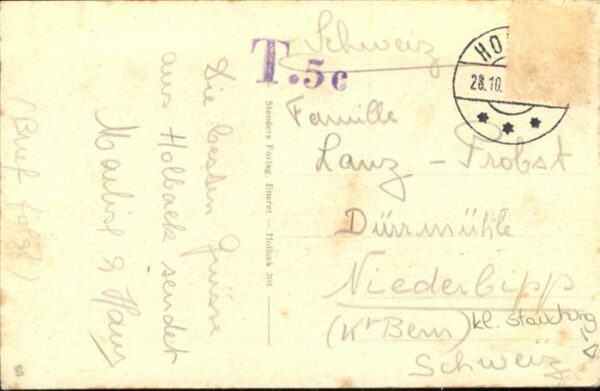 Die besten Grüsse
aus Holbaek sendet
Marlise & Hans
(Brief folgt)
Stenders Forlag, Eneret — Holbæk 204
T.5c
HO
28.10.
Schweiz
Familie
Lanz - Probst
Dürrmühle
Niederbipp
(Kt Bern)
Schweiz
kl. Stauchung